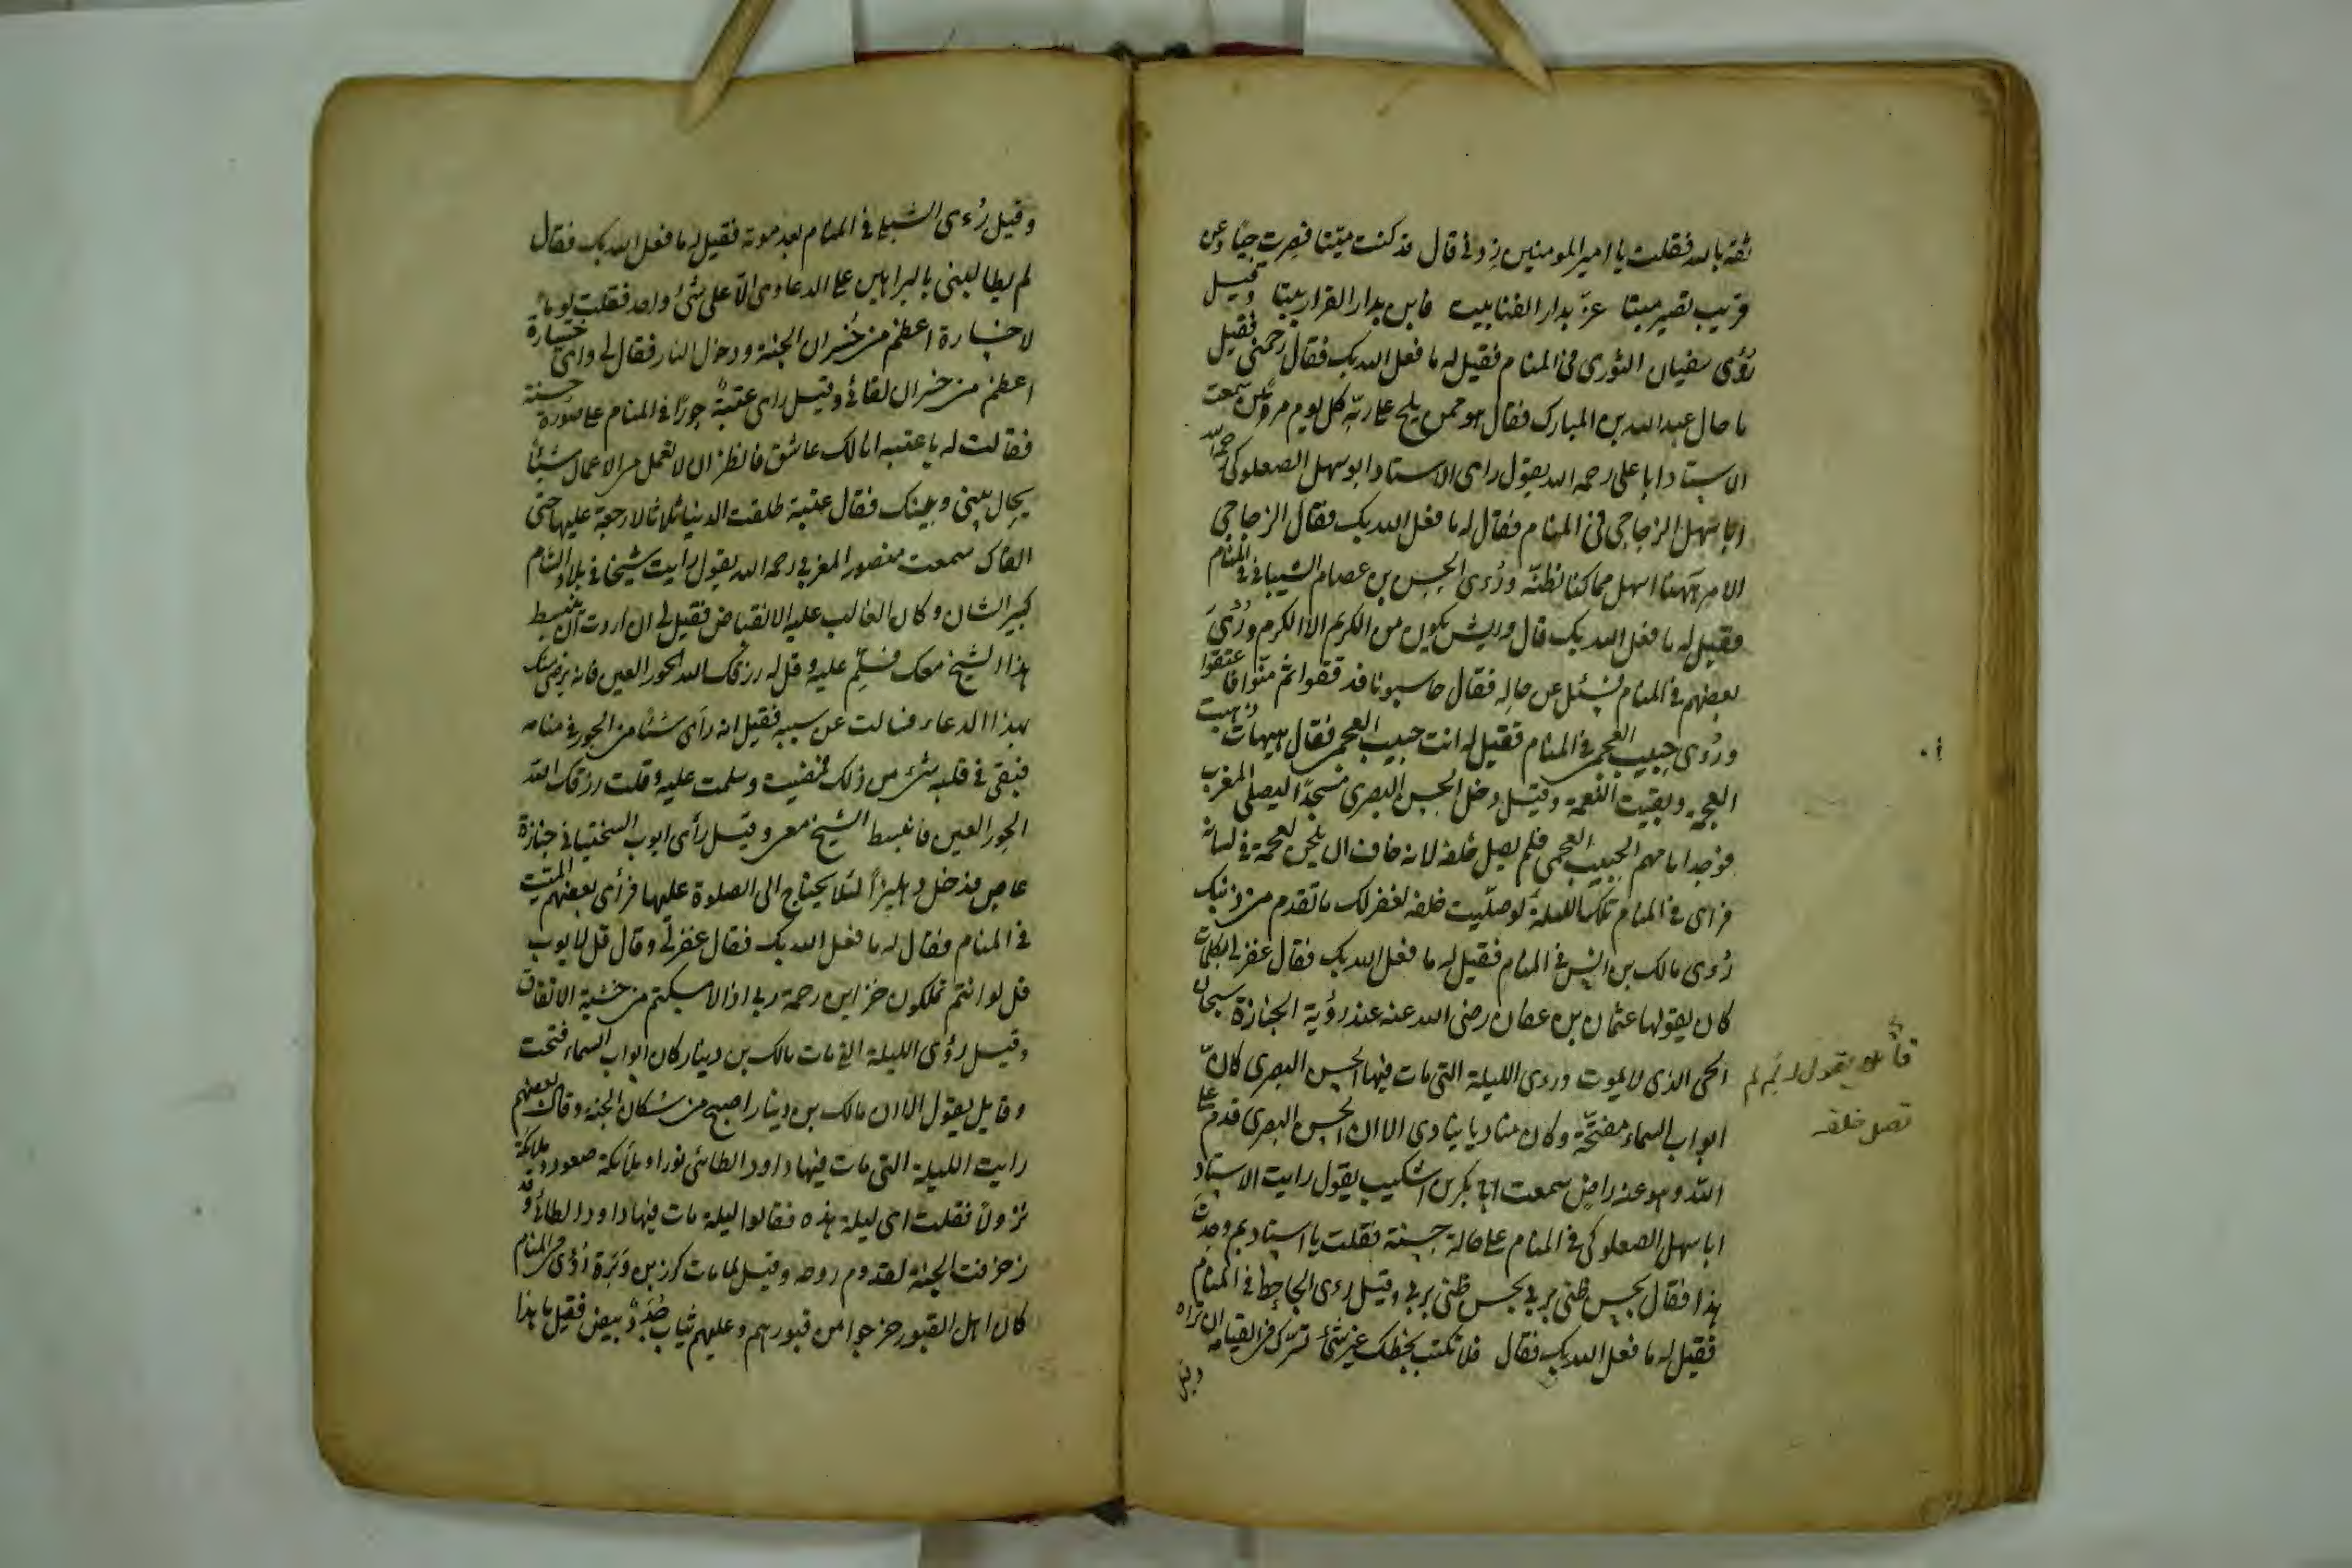 ثقة بالله فقلت يا امير المومنين زدني قال قد كنت ميتا فصرت حيا وعن
قريب تصير ميتا عزّ بدار الفنا بيت فابن بدار القرار بيتا وقيل
رؤى سفيان الثورى فى المنام فقيل له ما فعل الله بك فقال رحمنى فقيل
ما حال عبد الله بن المبارك فقال هو ممن يلج على ربه كل يوم مرتين سمعت
الاستاد ابا على رحمه الله يقول راى الاستاد ابو سهل الصعلوكى رحمه الله
ابا سهل الزجاجى فى المنام فقال له ما فعل الله بك فقال الزجاجى
الامر ههنا اسهل مما كنا نظنّه ورُءى الحسن بن عصام الشيبانى فى المنام
فقيل له ما فعل الله بك قال وايش يكون من الكريم الا الكرم ورُئى
بعضهم فى المنام فسئل عن حاله فقال حاسبونا فدققوا ثم منّوا فاعتقوا
ورُءى حبيب العجمى فى المنام فقيل له انت حبيب العجمى فقال هيهات ذهبت
العجمة وبقيت النعمة وقيل دخل الحسن البصرى مسجدا ليصلى المغرب
فوجد امامهم الحبيب العجمى فلم يصل خلفه لانه خاف ان يلحن لعجمة فى لسانه
فراى فى المنام تلك الليلة لو صلّيت خلفه لغفر لك ما تقدم من ذنبك
رُءى مالك بن انس فى المنام فقيل له ما فعل الله بك فقال غفر لى بكلمات
كان يقولها عثمان بن عفان رضى الله عنه عند رؤية الجنازة سبحان
الحى الذى لا يموت ورءى الليلة التى مات فيها الحسن البصرى كانّ
ابواب السماء مفتحّة وكان مناديا ينادى الا ان الحسن البصرى قدم على
الله وهو عنه راض سمعت ابا بكر بن اشكيب يقول رايت الاستاد
ابا سهل الصعلوكى فى المنام على حالة حسنة فقلت يا استاد بم وجدت
هذا فقال بحسن ظنى بربى بحسن ظنى بربى وقيل رءى الجاحظ فى المنام
فقيل له ما فعل الله بك فقال فلا تكتب بخطك غير شئ تسرك فى القيامة ان تراه
وقيل
يقول له لم لم
تصل خلفه
وقيل رُءى الشبلى فى المنام بعد موته فقيل له ما فعل الله بك فقال
لم يطالبنى بالبراهين على الدعاوى الا على شئ واحد فقلت يوما
لا خسارة اعظم من خُسران الجنة ودخول النار فقال لى واى خسارة
اعظم من خسران لقائى وقيل راى عتبة حورا فى المنام على صورة حسنة
فقالت له يا عتبه انا لك عاشق فانظر ان لا تعمل من الاعمال شيئا
يحال بينى وبينك فقال عتبة طلقت الدنيا ثلاثا لا رجعة عليها حتى
القاك سمعت منصور المغربى رحمه الله يقول رايت شيخا فى بلاد الشام
كبير الشان وكان الغالب عليه الانقباض فقيل لى ان اردت ان ينبسط
هذا الشيخ معك فسلّم عليه وقل له رزقك الله الحور العين فانه يرضى منك
بهذا الدعاء فسالت عن سببه فقيل انه رأى شيئا من الحور فى منامه
فبقى فى قلبه شئ من ذلك فمضيت وسلمت عليه وقلت رزقك الله
الحور العين فانبسط الشيخ معى وقيل رأى ايوب السختيانى جنازة
عاص فدخل دهليزاً لئلا يحتاج الى الصلوة عليها فرأى بعضهم الميت
فى المنام فقال له ما فعل الله بك فقال غفر لى وقال قل لايوب
قل لو انتم تملكون خزاين رحمة ربى اذا لامسكتم من خشية الانفاق
وقيل رؤى الليلة التى مات مالك بن دينار كان ابواب السماء فتحت
وقايل يقول الا ان مالك بن دينار اصبح من سكان الجنه وقال بعضهم
رايت الليلة التى مات فيها داود الطائى نورا وملائكة صعودا وملائكة
نزولاً فقلت اى ليلة هذه فقالوا ليلة مات فيها داود الطائى وقد
زخرفت الجنة لقدوم روحه وقيل لما مات كرز بن وَبَرة رُؤى فى المنام
كان اهل القبور خرجوا من قبورهم وعليهم ثياب جُدُدٌ بيض فقيل ما هذا